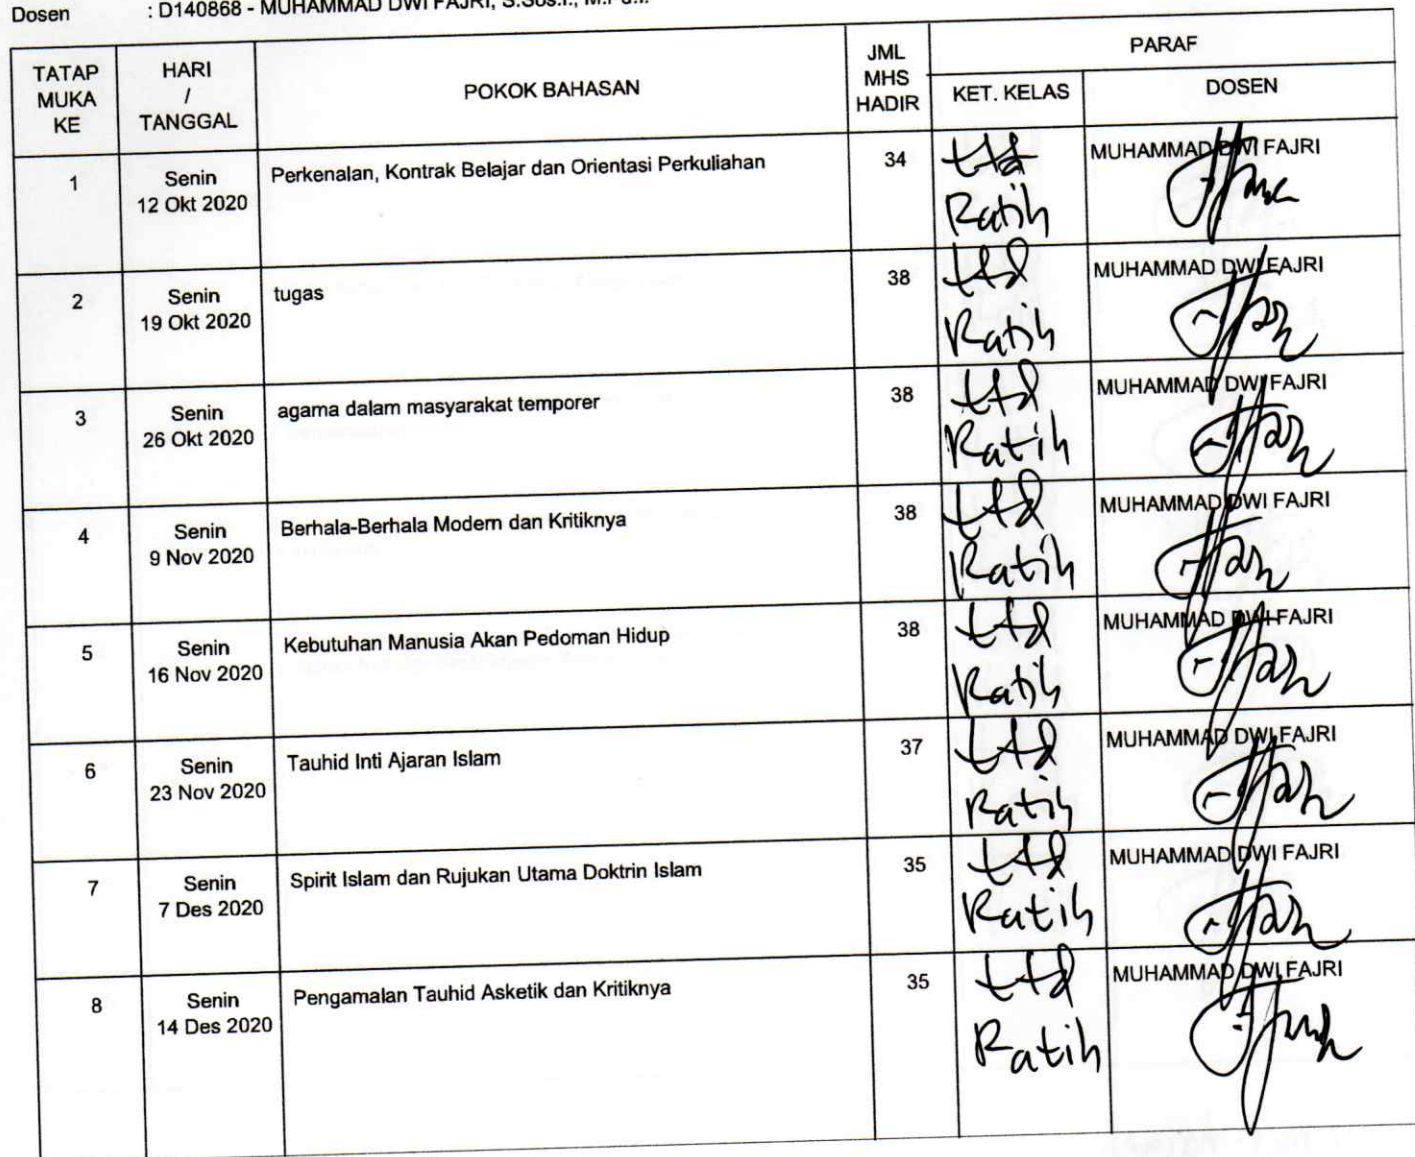 Dosen : D140868 - MUHAMMAD DWI FAJRI, S.Sos.I., M.Pd.I.
TATAP MUKA KE
HARI / TANGGAL
POKOK BAHASAN
JML MHS HADIR
PARAF
KET. KELAS
DOSEN
1
Senin
12 Okt 2020
Perkenalan, Kontrak Belajar dan Orientasi Perkuliahan
34
ttd
Ratih
MUHAMMAD DWI FAJRI
2
Senin
19 Okt 2020
tugas
38
ttd
Ratih
MUHAMMAD DWI FAJRI
3
Senin
26 Okt 2020
agama dalam masyarakat temporer
38
ttd
Ratih
MUHAMMAD DWI FAJRI
4
Senin
9 Nov 2020
Berhala-Berhala Modern dan Kritiknya
38
ttd
Ratih
MUHAMMAD DWI FAJRI
5
Senin
16 Nov 2020
Kebutuhan Manusia Akan Pedoman Hidup
38
ttd
Ratih
MUHAMMAD DWI FAJRI
6
Senin
23 Nov 2020
Tauhid Inti Ajaran Islam
37
ttd
Ratih
MUHAMMAD DWI FAJRI
7
Senin
7 Des 2020
Spirit Islam dan Rujukan Utama Doktrin Islam
35
ttd
Ratih
MUHAMMAD DWI FAJRI
8
Senin
14 Des 2020
Pengamalan Tauhid Asketik dan Kritiknya
35
ttd
Ratih
MUHAMMAD DWI FAJRI